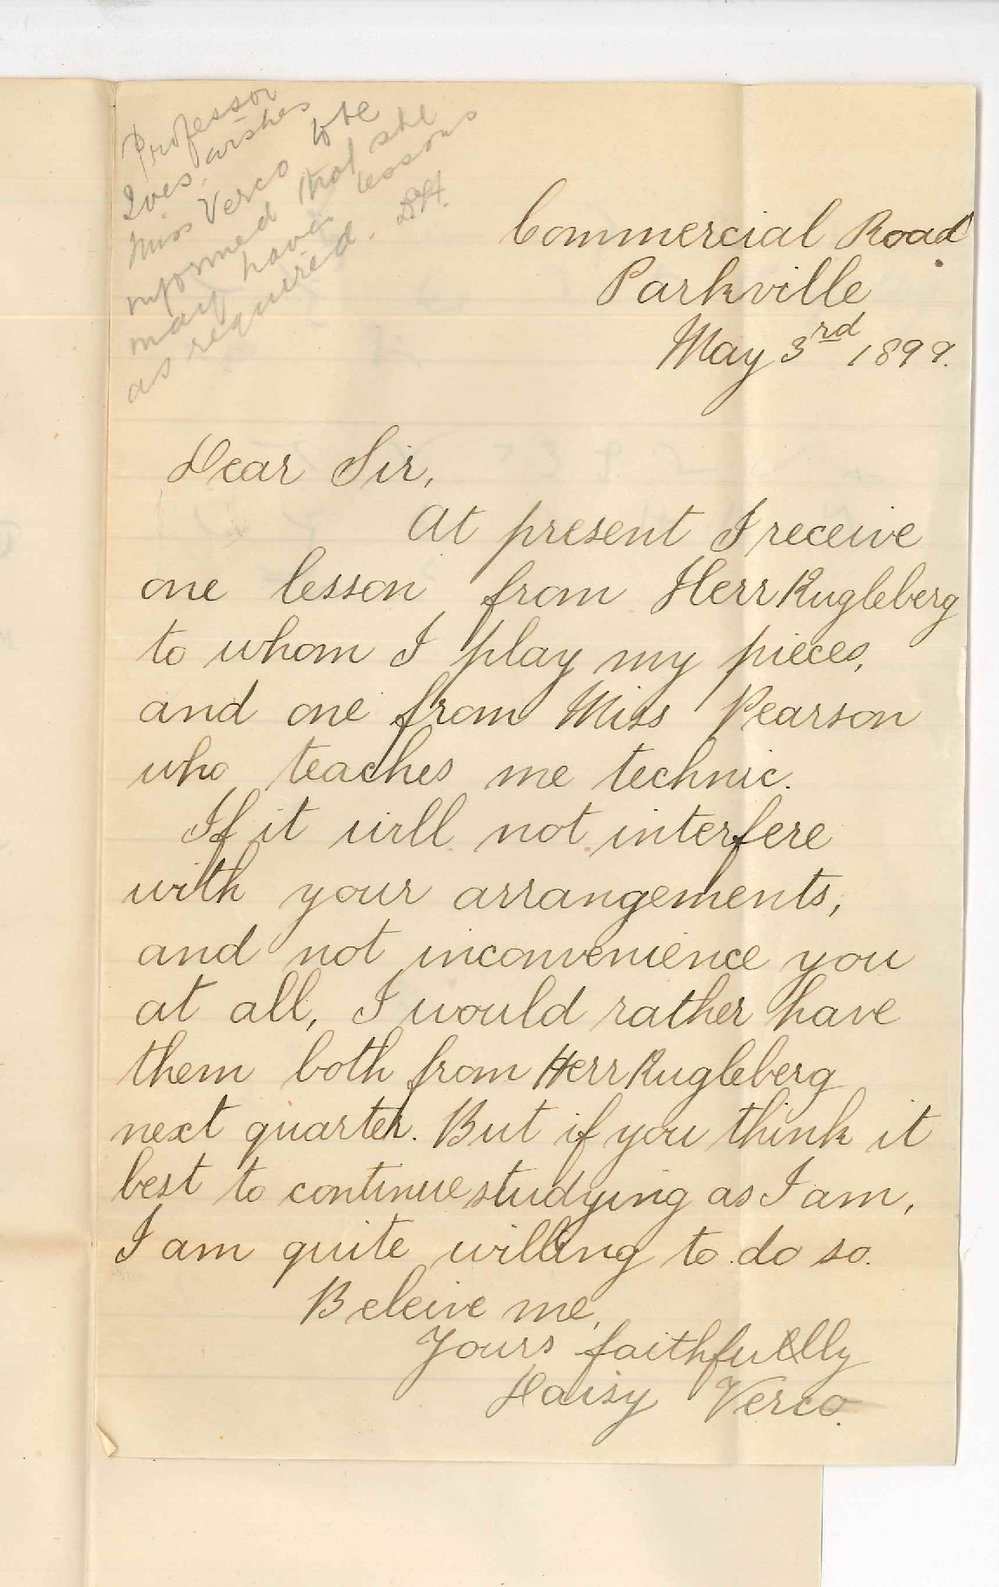 Professor
Ives, wishes
Miss Verco to be
informed that she
may have lessons
as required. D.H.
Commercial Road
Parkville
May 3rd 1899.
Dear Sir,
At present I receive
one lesson from Herr Rugleberg
to whom I play my pieces,
and one from Miss Pearson
who teaches me technic.
If it will not interfere
with your arrangements,
and not inconvenience you
at all, I would rather have
them both from Herr Rugleberg
next quarter. But if you think it
best to continue studying as I am,
I am quite willing to do so.
Beleive me,
Yours faithfully
Daisy Verco.